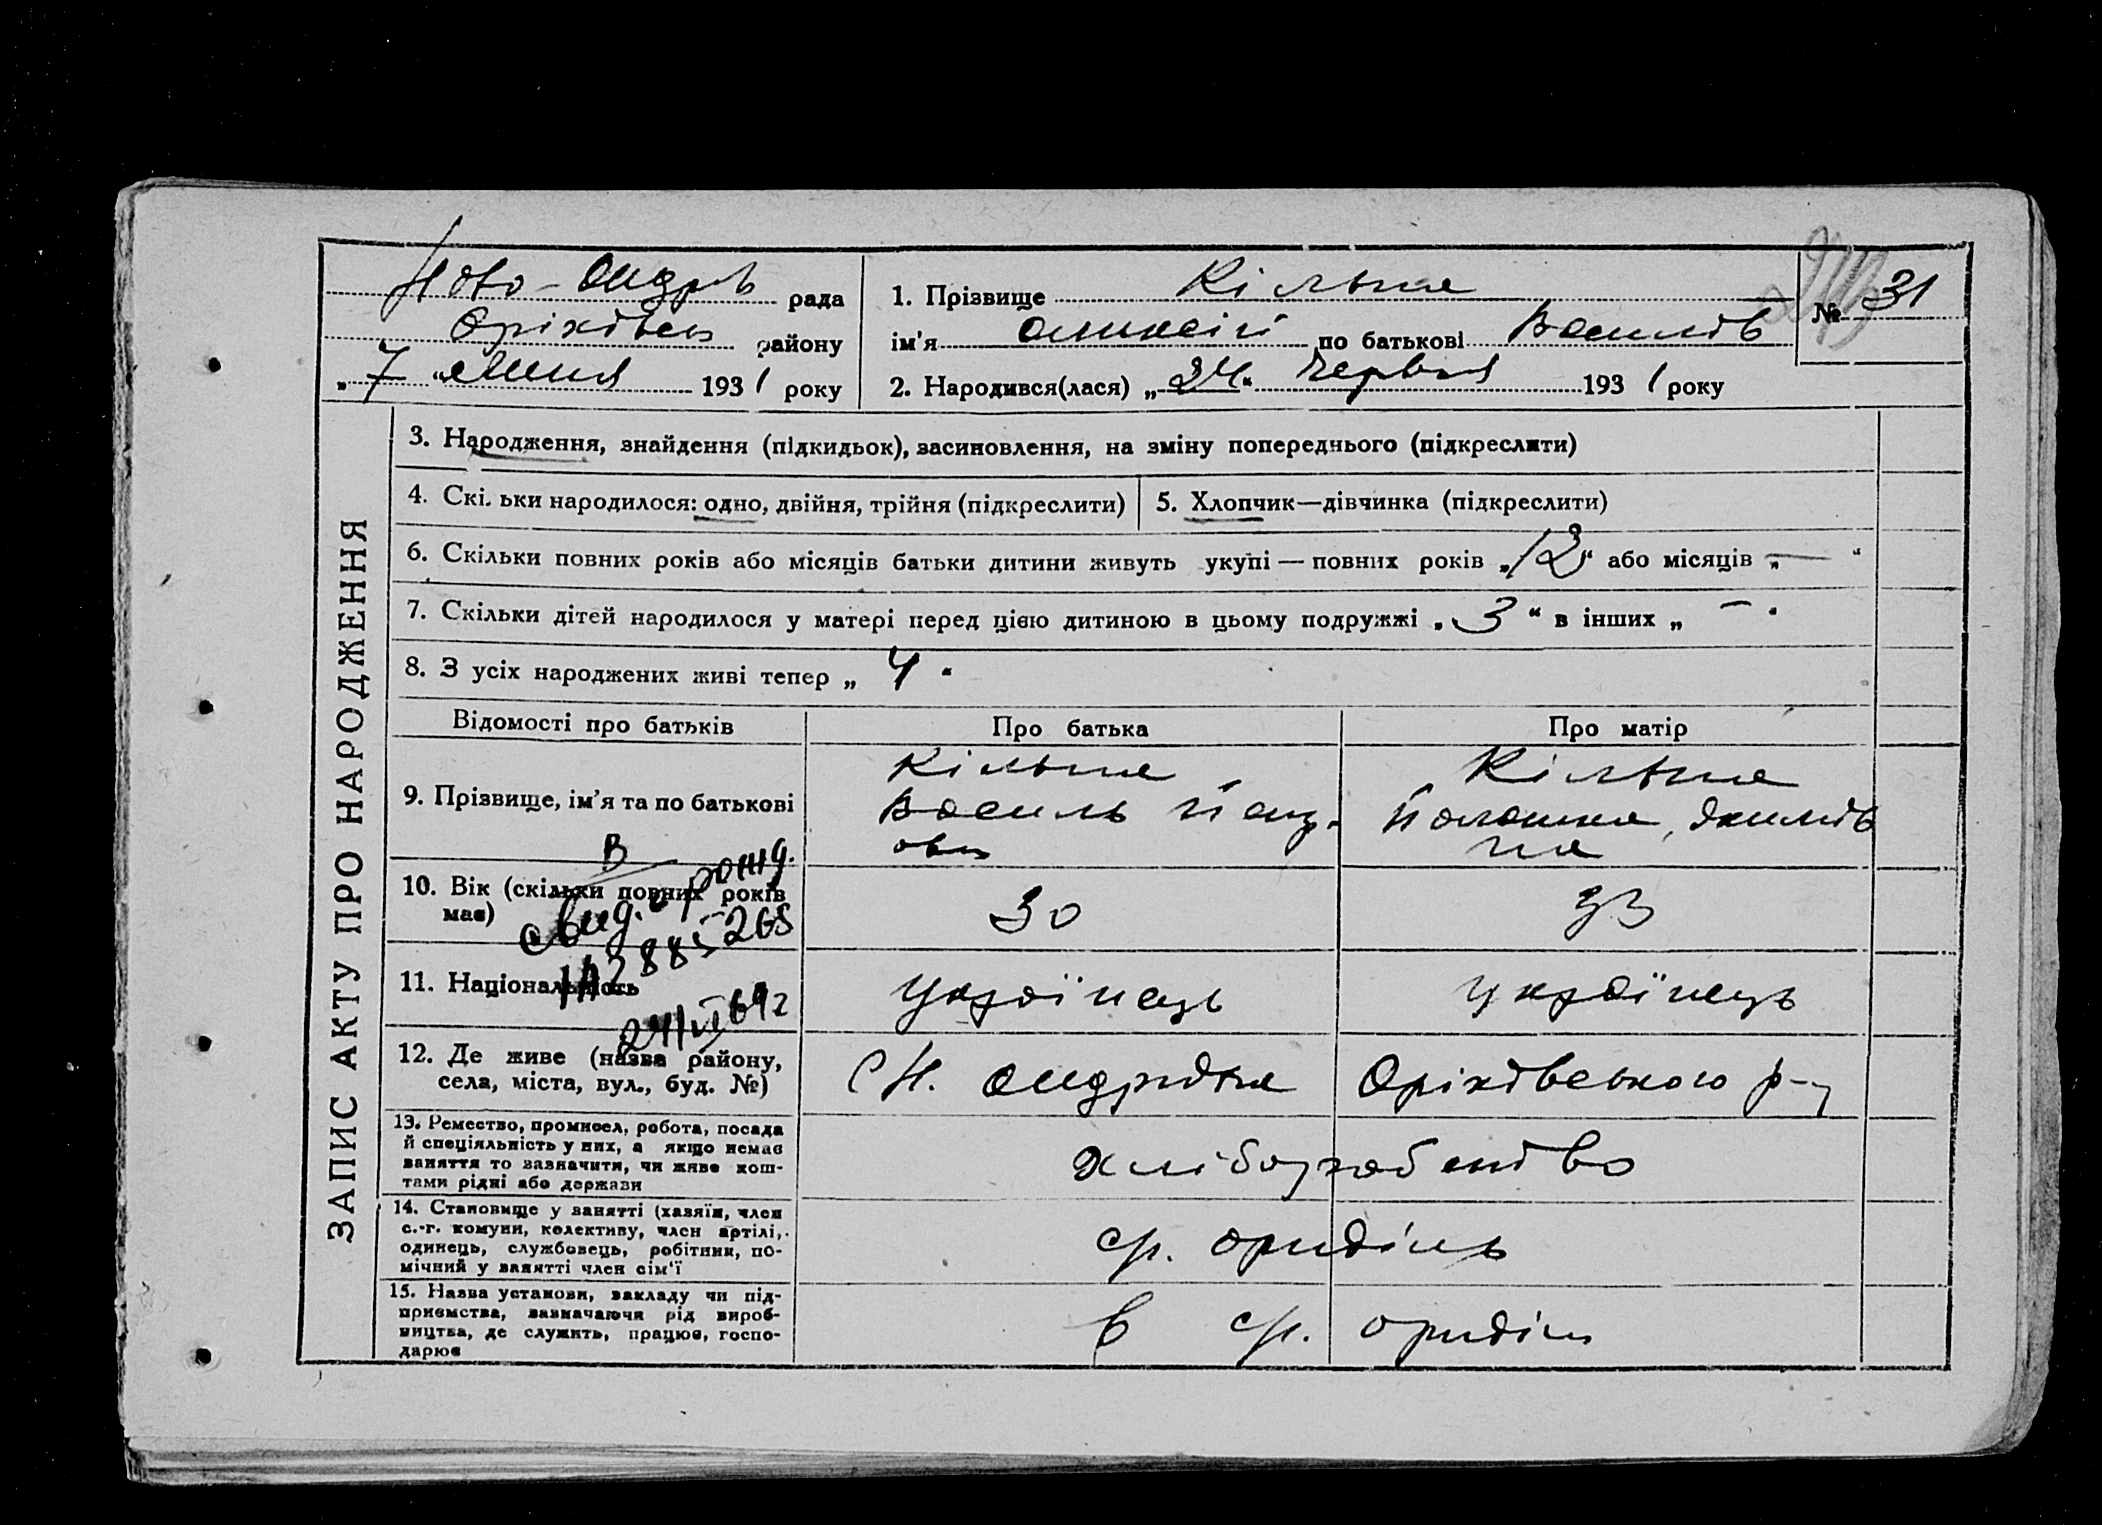 Ново-Андрів рада
Оріхівськ району
„ 7 “ липня 1931 року
1. Прізвище Кільна
ім'я Олексій по батькові Василів
2. Народився(лася) „ 24 “ червня 1931 року
№ 31
ЗАПИС АКТУ ПРО НАРОДЖЕННЯ
3. Народження, знайдення (підкидьок), засиновлення, на зміну попереднього (підкреслити)
4. Скільки народилося: одно, двійня, трійня (підкреслити)
5. Хлопчик—дівчинка (підкреслити)
6. Скільки повних років або місяців батьки дитини живуть укупі — повних років „ 12 “ або місяців „ — “
7. Скільки дітей народилося у матері перед цією дитиною в цьому подружжі „ 3 “ в інших „ — “
8. З усіх народжених живі тепер „ 4 “
Відомості про батьків
Про батька
Про матір
9. Прізвище, ім'я та по батькові
Кільна
Василь
Кільна
10. Вік (скільки повних років
має)
30
33
В
свид. о рожд.
885265
24/VI 69г
11. Національність
Українець
Українець
12. Де живе (назва району,
села, міста, вул., буд. №)
с Н. Андрівка Оріхівського р-у
13. Ремество, промисел, робота, посада
й спеціяльність у них, а якщо немає
заняття то зазначити, чи живе кош-
тами рідні або держави
хліборобство
14. Становище у занятті (хазяїн, член
с.-г. комуни, колективу, член артілі,
одинець, службовець, робітник, по-
мічний у занятті член сім'ї
15. Назва установи, закладу чи під-
приємства, зазначаючи рід вироб-
ництва, де служить, працює, госпо-
дарює
в